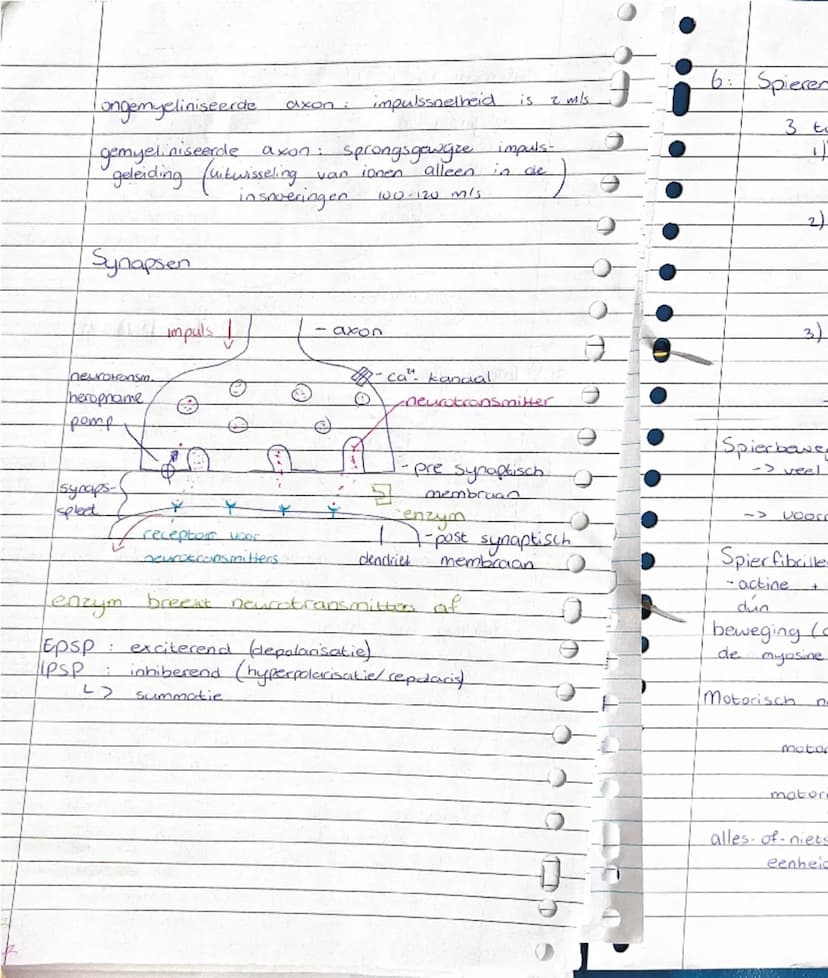 ongemyeliniseerde axon: impulssnelheid is 2 m/s
gemyeliniseerde axon: sprongsgewijze impuls-
geleiding (uitwisseling van ionen alleen in de
insnoeringen 100-120 m/s)
Synapsen
impuls ↓
- axon
neurotransm.
heropname
pomp
- Ca²⁺ kanaal
neurotransmitter
- pre synaptisch
membraan
synaps-
spleet
enzym
receptor voor
neurotransmitters
dendriet
- post synaptisch
membraan
enzym breekt neurotransmitters af
EPSP : exciterend (depolarisatie)
IPSP : inhiberend (hyperpolarisatie/repolaris)
↳ summatie
6: Spieren
3 t
1)
2)
3)
Spierbeweg
-> veel
-> voor
Spierfibrille
- actine +
dún
beweging (
de myosine
Motorisch n
motor
motor
alles-of-niets
eenheid